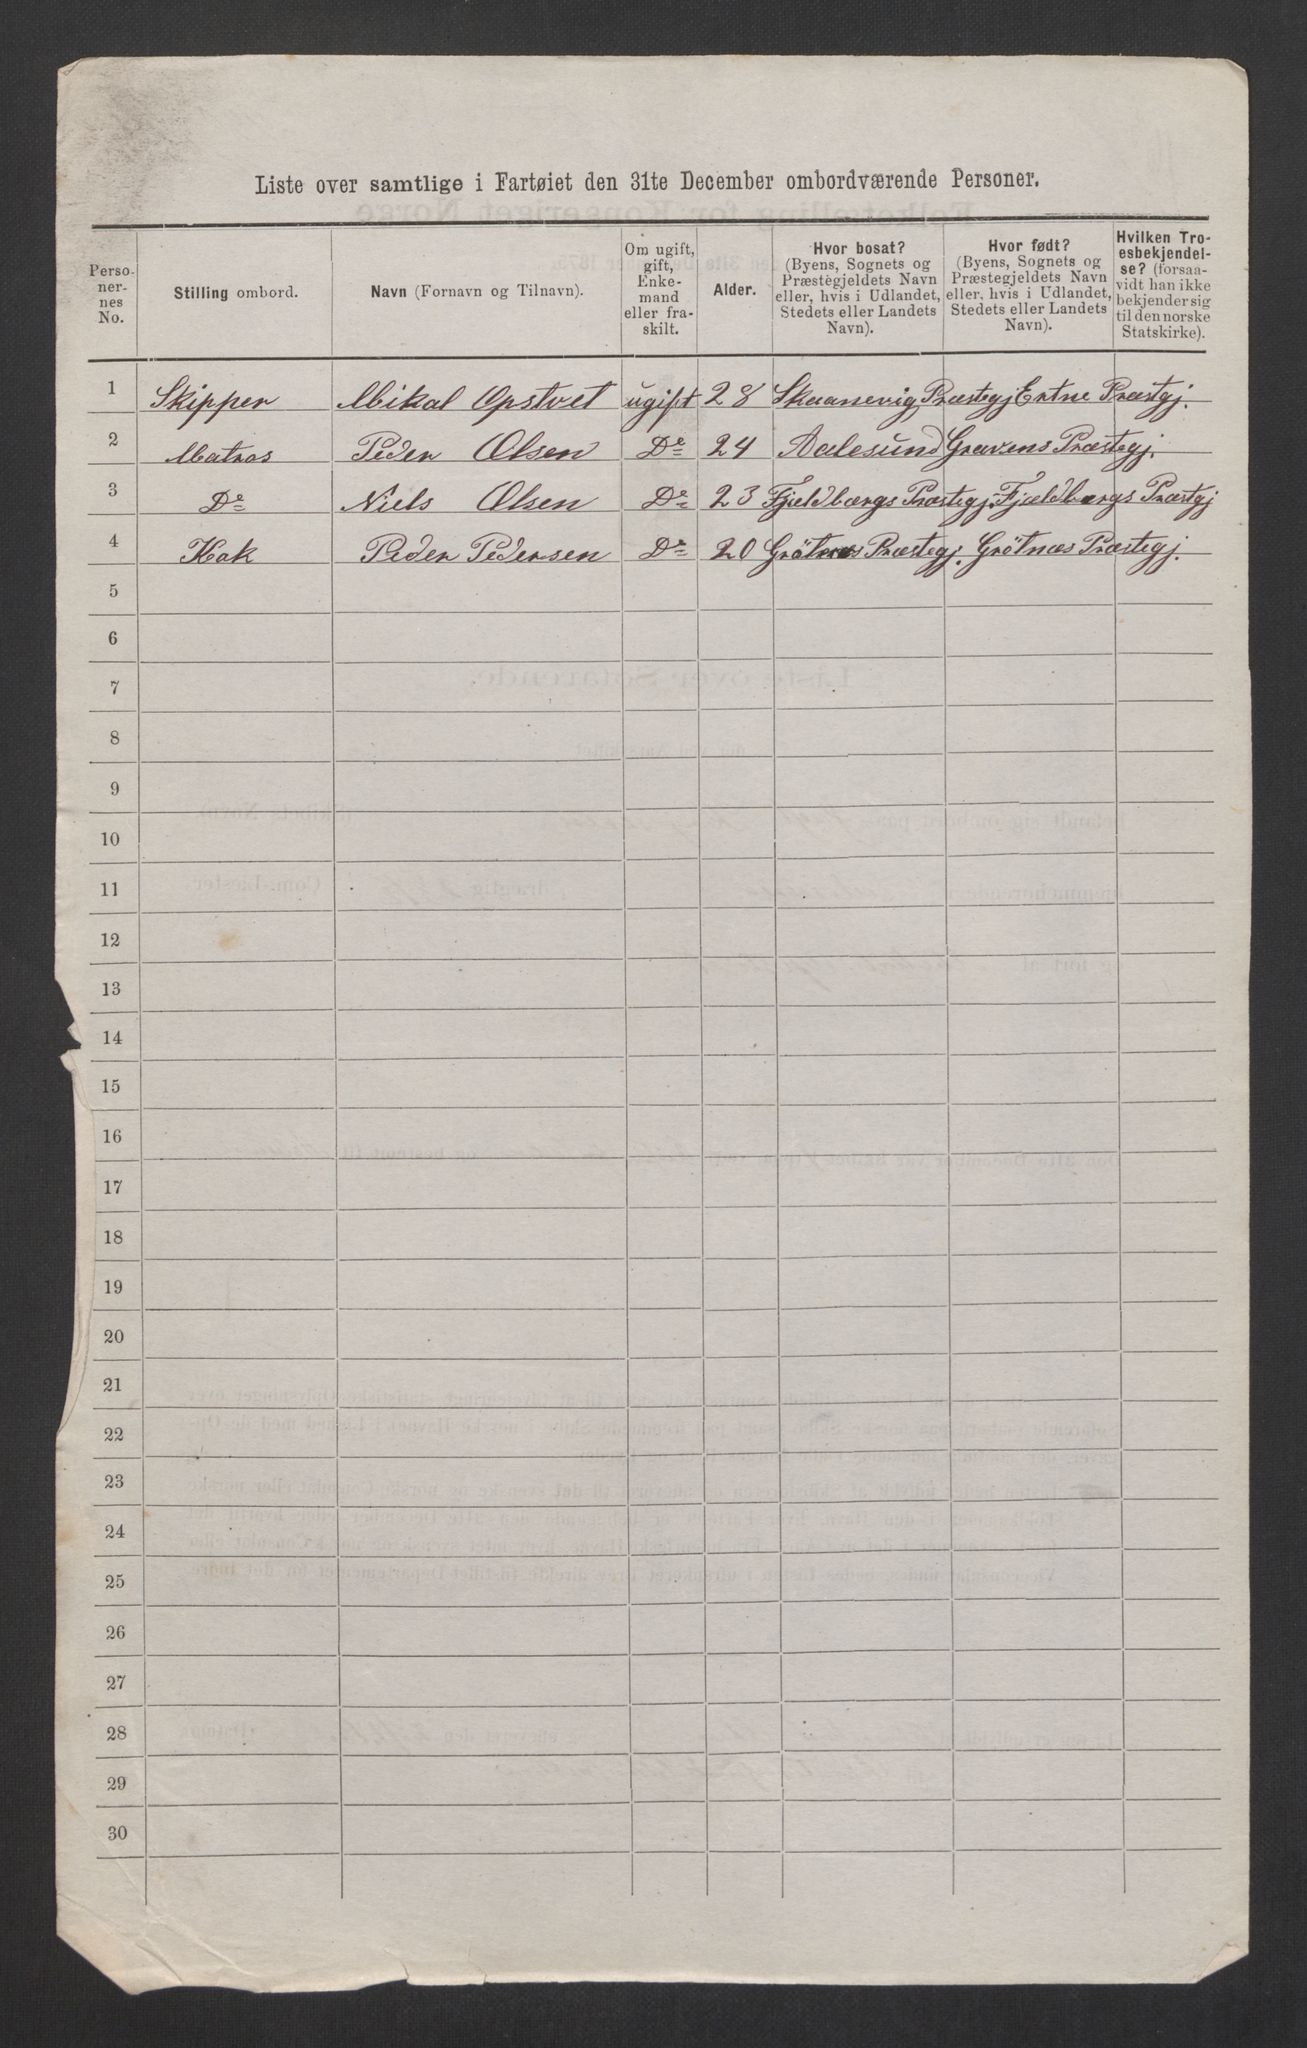 Liste over samtlige i Fartøiet den 31te December ombordværende Personer.
Perso-
ner-
nes
No.
Stilling ombord.
Navn (Fornavn og Tilnavn).
Om ugift,
gift,
Enke-
mand
eller fra-
skilt.
Alder.
Hvor bosat?
(Byens, Sognets og
Præstegjeldets Navn
eller, hvis i Udlandet,
Stedets eller Landets
Navn).
Hvor født?
(Byens, Sognets og
Præstegjeldets Navn
eller, hvis i Udlandet,
Stedets eller Landets
Navn).
Hvilken Tro-
esbekjendel-
se? (forsaa-
vidt han ikke
bekjender sig
til den norske
Statskirke).
1 Skipper Mikal Opstvet ugift 28 Skaanevig Præstegj Entne Præstgj.
2 Matros Peder Olsen Do 24 Aalesund Gravens Præstegj.
3 Do Niels Olsen Do 23 Fjeldbærgs Præstegj. Fjældbærgs Præstgj
4 Kok Peder Pedersen Do 20 Grötnæs Præstegj. Grötnæs Præstegj.
5
6
7
8
9
10
11
12
13
14
15
16
17
18
19
20
21
22
23
24
25
26
27
28
29
30